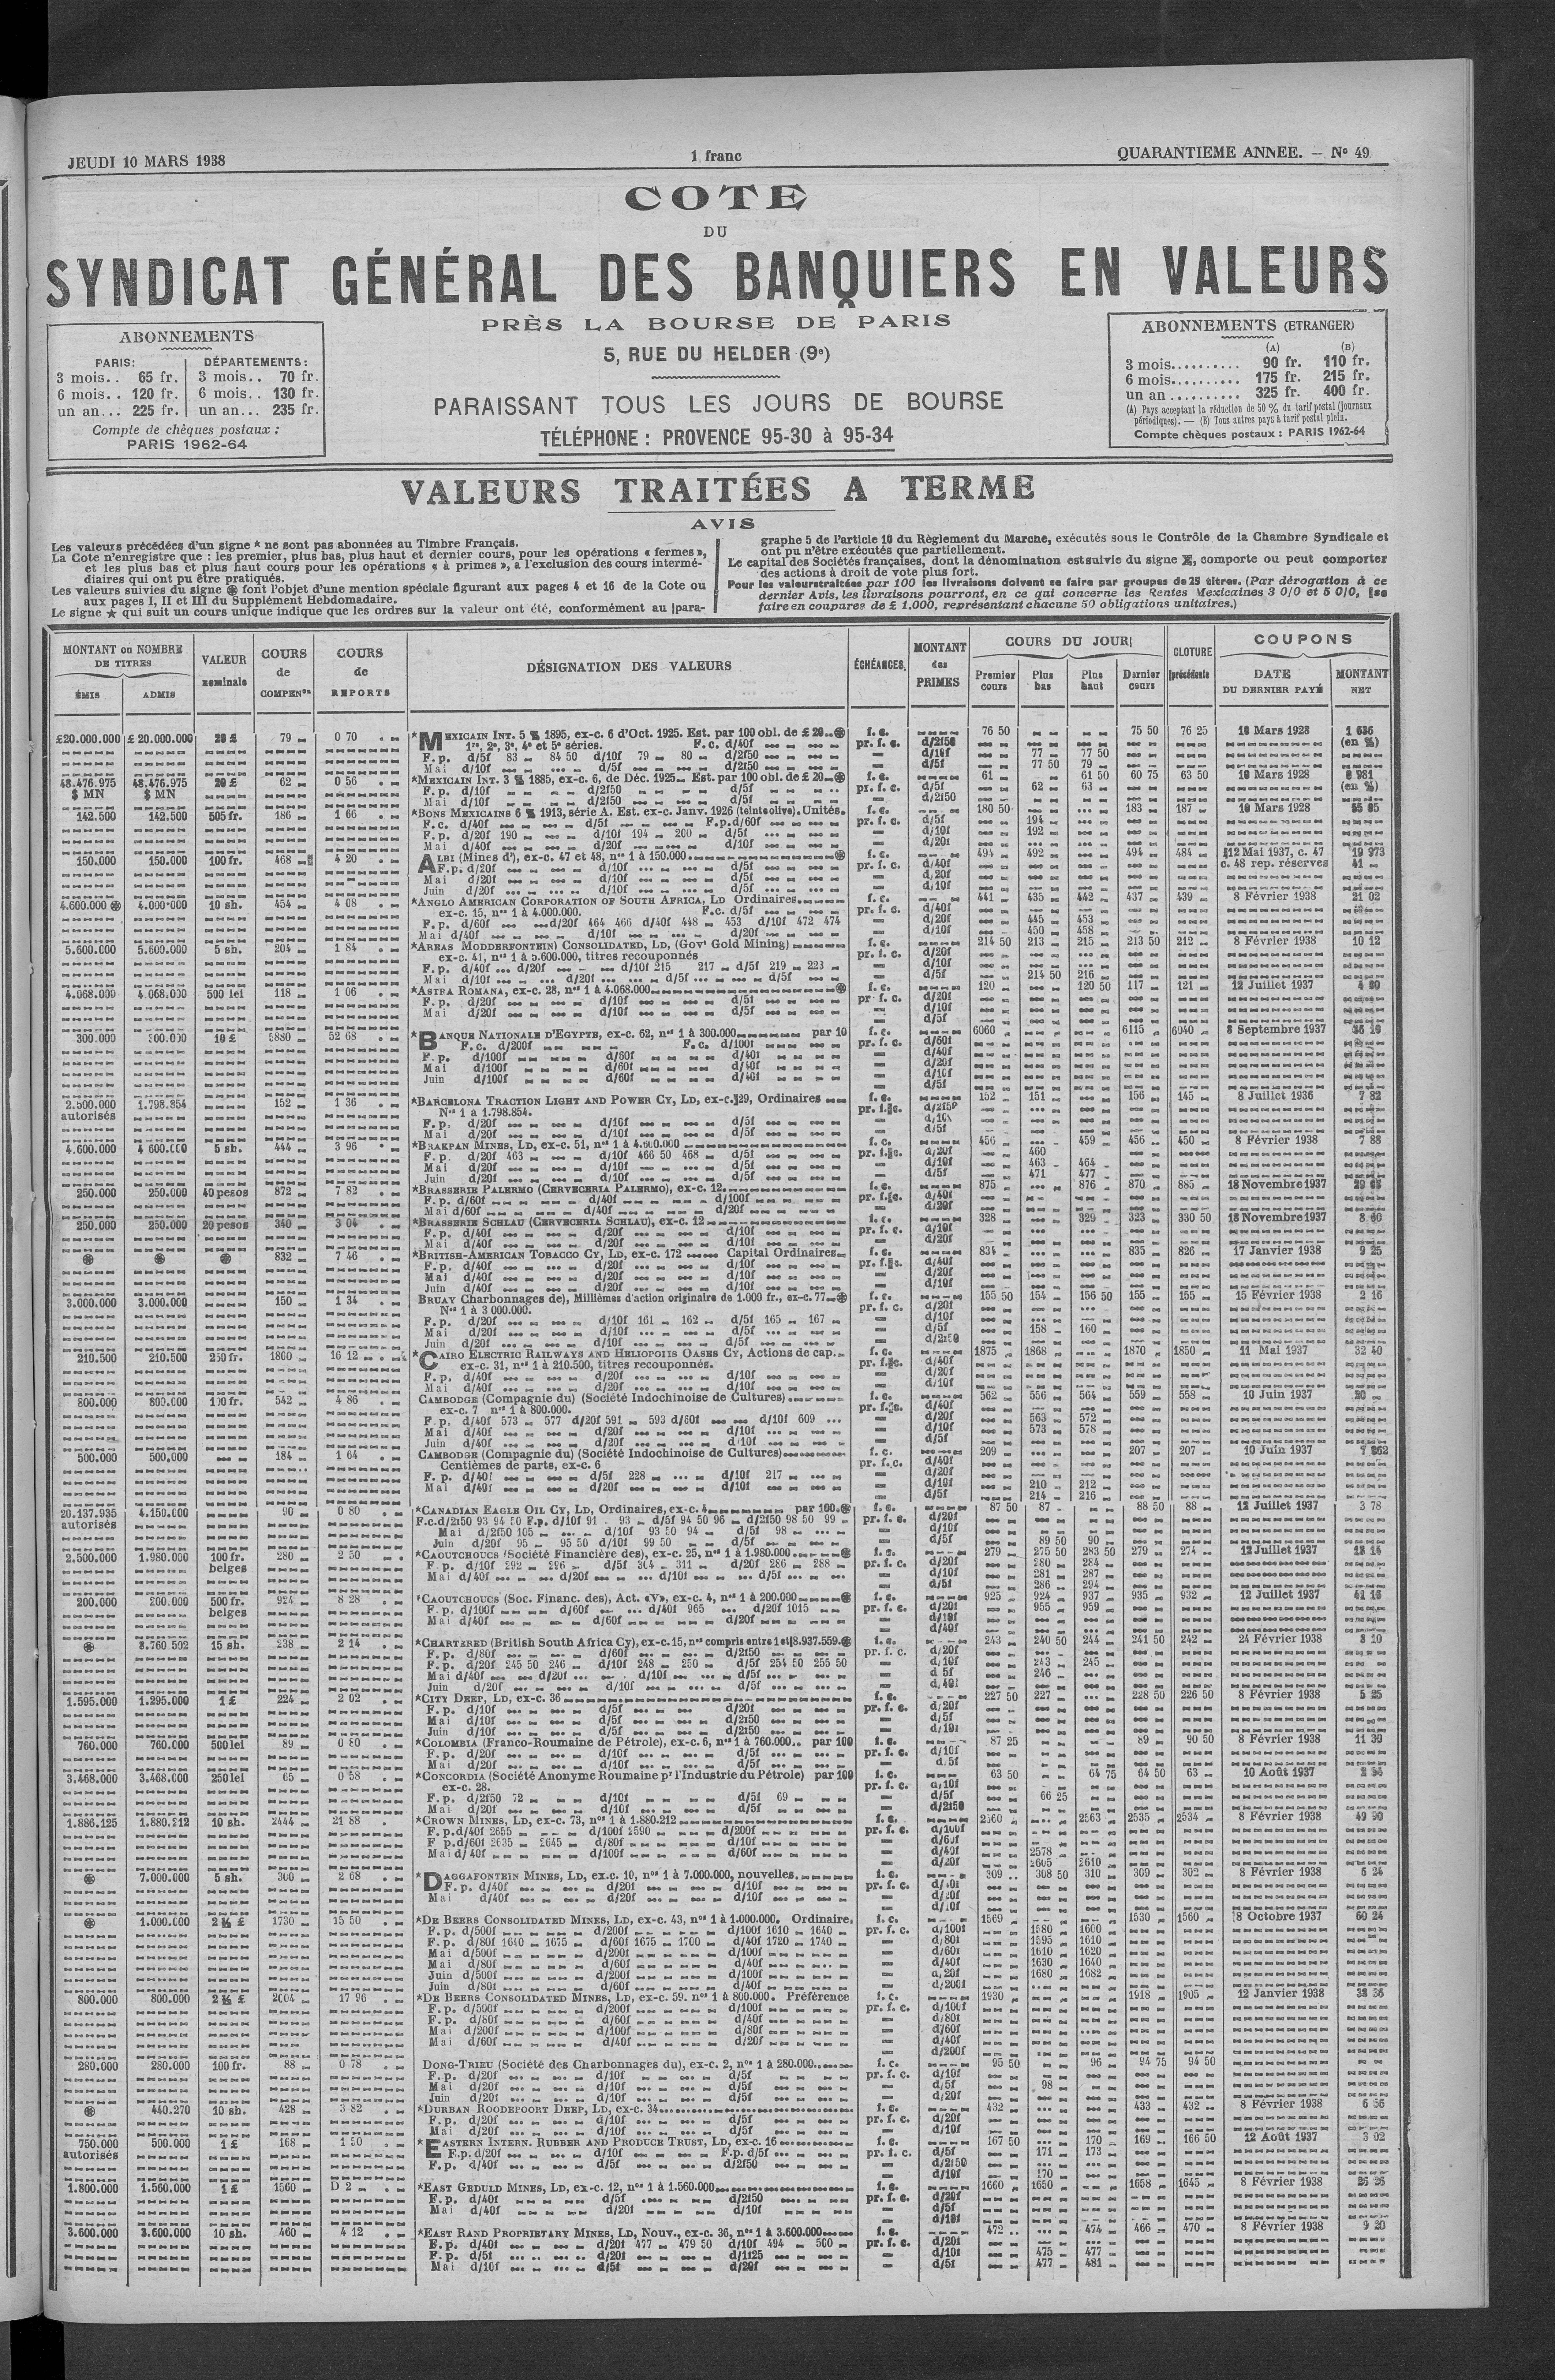 JEUDI 10 MARS 1938
1 franc
QUARANTIEME ANNEE. — Nº 49
COTE
DU
SYNDICAT GÉNÉRAL DES BANQUIERS EN VALEURS
PRÈS LA BOURSE DE PARIS
5, RUE DU HELDER (9e)
PARAISSANT TOUS LES JOURS DE BOURSE
TÉLÉPHONE : PROVENCE 95-30 à 95-34
ABONNEMENTS
PARIS: DÉPARTEMENTS:
3 mois.. 65 fr. 3 mois.. 70 fr.
6 mois.. 120 fr. 6 mois.. 130 fr.
un an... 225 fr. un an... 235 fr.
Compte de chèques postaux :
PARIS 1962-64
ABONNEMENTS (ETRANGER)
(A) (B)
3 mois.......... 90 fr. 110 fr.
6 mois.......... 175 fr. 215 fr.
un an .......... 325 fr. 400 fr.
(A) Pays acceptant la réduction de 50 % du tarif postal (journaux
périodiques). — (B) Tous autres pays à tarif postal plein.
Compte chèques postaux : PARIS 1962-64
VALEURS TRAITÉES A TERME
AVIS
Les valeurs précédées d'un signe * ne sont pas abonnées au Timbre Français.
La Cote n'enregistre que : les premier, plus bas, plus haut et dernier cours, pour les opérations « fermes »,
et les plus bas et plus haut cours pour les opérations « à primes », a l'exclusion des cours intermé-
diaires qui ont pu être pratiqués.
Les valeurs suivies du signe ⊛ font l'objet d'une mention spéciale figurant aux pages 4 et 16 de la Cote ou
aux pages I, II et III du Supplément Hebdomadaire.
Le signe ★ qui suit un cours unique indique que les ordres sur la valeur ont été, conformément au para-
graphe 5 de l'article 10 du Règlement du Marche, exécutés sous le Contrôle de la Chambre Syndicale et
ont pu n'être exécutés que partiellement.
Le capital des Sociétés françaises, dont la dénomination est suivie du signe, comporte ou peut comporter
des actions à droit de vote plus fort.
Pour les valeurs traitées par 100 les livraisons doivent se faire par groupes de 25 titres. (Par dérogation à ce
dernier Avis, les livraisons pourront, en ce qui concerne les Rentes Mexicaines 3 0/0 et 5 0/0, se
faire en coupures de £ 1.000, représentant chacune 50 obligations unitaires.)
MONTANT ou NOMBRE DE TITRES
ÉMIS ADMIS
VALEUR nominale
COURS de COMPENon
COURS de REPORTS
DÉSIGNATION DES VALEURS
ÉCHÉANCES
MONTANT des PRIMES
COURS DU JOUR
Premier cours Plus bas Plus haut Dernier cours
CLOTURE précédente
COUPONS
DATE DU DERNIER PAYÉ
MONTANT NET
£20.000.000 £ 20.000.000 20 £ 79 0 70 *MEXICAIN INT. 5 % 1895, ex-c. 6 d'Oct. 1925. Est. par 100 obl. de £ 20 ⊛ f. c. 76 50 75 50 76 25 10 Mars 1928
1re, 2e, 3e, 4e et 5e séries. F.c. d/40f pr. f. c. d/2f50 (en %)
F. p. d/5f 83 84 50 d/10f 79 80 d/2f50 d/10f 77 77 50
Mai d/10f d/5f d/2f50 d/5f 77 50 79
48.476.975 48.476.975 20 £ 62 0 56 *MEXICAIN INT. 3 % 1885, ex-c. 6, de Déc. 1925 Est. par 100 obl. de £ 20 ⊛ f. c. 61 61 50 60 75 63 50 10 Mars 1928
$ MN $ MN F. p. d/10f d/2f50 d/5f pr. f. c. d/5f 62 63 (en %)
Mai d/10f d/2f50 d/5f d/2f50
142.500 142.500 505 fr. 186 1 66 *BONS MEXICAINS 6 % 1913, série A. Est. ex-c. Janv. 1926 (teinte olive). Unités. f. c. 180 50 183 187 10 Mars 1928
F. c. d/40f d/5f F.p. d/60f pr. f. c. d/5f 194
F. p. d/20f 190 d/10f 194 200 d/5f d/10f 192
Mai d/40f d/20f d/10f d/20f
150.000 150.000 100 fr. 468 4 20 ALBI (Mines d'), ex-c. 47 et 48, nos 1 à 150.000 ⊛ f. c. 494 492 494 484 12 Mai 1937, c. 47 19 973
F.p. d/20f d/10f d/5f pr. f. c. d/40f c. 48 rep. réserves 41
Mai d/20f d/10f d/5f d/20f
Juin d/20f d/10f d/5f d/10f
4.600.000 ⊛ 4.000.000 10 sh. 454 4 08 *ANGLO AMERICAN CORPORATION OF SOUTH AFRICA, LD Ordinaires f. c. 441 435 442 437 439 8 Février 1938 21 02
ex-c. 15, nos 1 à 4.000.000. F.c. d/5f pr. f. c. d/40f
F. p. d/60f d/20f 464 466 d/40f 448 453 d/10f 472 474 d/20f 445 453
Mai d/40f d/10f d/20f d/10f 450 458
5.600.000 5.600.000 5 sh. 204 1 84 *AREAS MODDERFONTEIN) CONSOLIDATED, LD, (Govt Gold Mining) f. c. 214 50 213 215 213 50 212 8 Février 1938 10 12
ex-c. 41, nos 1 à 5.600.000, titres recouponnés pr. f. c. d/20f
F. p. d/40f d/20f d/10f 215 217 d/5f 219 223 d/10f
Mai d/10f d/20f d/5f d/5f d/5f 214 50 216
4.068.000 4.068.000 500 lei 118 1 06 *ASTRA ROMANA, ex-c. 28, nos 1 à 4.068.000 ⊛ f. c. 120 120 50 117 121 12 Juillet 1937 4 80
F. p. d/20f d/10f d/5f pr. f. c. d/20f
Mai d/20f d/10f d/5f d/10f
d/5f
300.000 300.000 10 £ 5880 52 68 *BANQUE NATIONALE D'EGYPTE, ex-c. 62, nos 1 à 300.000 par 10 f. c. 6060 6115 6040 8 Septembre 1937
F. c. d/200f F. c. d/100f pr. f. c. d/60f
F. p. d/100f d/60f d/40f d/40f
Mai d/100f d/60f d/40f d/20f
Juin d/100f d/60f d/40f d/10f
d/5f
2.500.000 1.798.854 152 1 36 *BARCELONA TRACTION LIGHT AND POWER CY, LD, ex-c. 29, Ordinaires f. c. 152 151 156 145 8 Juillet 1936 7 82
autorisés Nos 1 à 1.798.854. pr. f. c. d/2f50
F. p. d/20f d/10f d/5f d/10f
Mai d/20f d/10f d/5f d/5f
4.600.000 4 600.000 5 sh. 444 3 96 *BRAKPAN MINES, LD, ex-c. 51, nos 1 à 4.600.000 f. c. 456 459 456 450 8 Février 1938 7 88
F. p. d/20f 463 d/10f 466 50 468 d/5f pr. f. c. d/20f 460
Mai d/20f d/10f d/5f d/10f 463 464
Juin d/20f d/10f d/5f d/5f 471 477
250.000 250.000 40 pesos 872 7 82 *BRASSERIE PALERMO (CERVECERIA PALERMO), ex-c. 12 f. c. 875 876 870 885 18 Novembre 1937
F. p. d/60f d/40f d/100f pr. f. c. d/40f
Mai d/60f d/40f d/20f d/20f
250.000 250.000 20 pesos 340 3 04 *BRASSERIE SCHLAU (CERVECERIA SCHLAU), ex-c. 12 f. c. 328 329 323 330 50 18 Novembre 1937
F. p. d/40f d/20f d/10f pr. f. c. d/10f
Mai d/40f d/20f d/10f d/20f
⊛ ⊛ ⊛ 832 7 46 *BRITISH-AMERICAN TOBACCO CY, LD, ex-c. 172 Capital Ordinaires f. c. 834 835 826 17 Janvier 1938 9 25
F. p. d/40f d/20f d/10f pr. f. c. d/40f
Mai d/40f d/20f d/10f d/20f
Juin d/40f d/20f d/10f d/10f
3.000.000 3.000.000 150 1 34 BRUAY Charbonnages de), Millièmes d'action originaire de 1.000 fr., ex-c. 77 ⊛ f. c. 155 50 154 156 50 155 155 15 Février 1938 2 16
Nos 1 à 3 000.000. pr. f. c. d/20f
F. p. d/20f d/10f 161 162 d/5f 165 167 d/10f
Mai d/20f d/10f d/5f d/5f 158 160
Juin d/20f d/10f d/5f d/2f50
210.500 210.500 250 fr. 1800 16 12 *CAIRO ELECTRIC RAILWAYS AND HELIOPOLIS OASES CY, Actions de cap. f. c. 1875 1868 1870 1850 11 Mai 1937 32 40
ex-c. 31, nos 1 à 210.500, titres recouponnés. pr. f. c. d/40f
F. p. d/40f d/20f d/10f d/20f
Mai d/40f d/20f d/10f d/10f
800.000 800.000 100 fr. 542 4 86 CAMBODGE (Compagnie du) (Société Indochinoise de Cultures) f. c. 562 556 564 559 558 10 Juin 1937
ex-c. 7 nos 1 à 800.000. pr. f. c. d/40f
F. p. d/40f 573 577 d/20f 591 593 d/60f d/10f 609 d/20f 563 572
Mai d/40f d/20f d/10f d/10f 573 578
Juin d/40f d/20f d/10f d/5f
500.000 500.000 184 1 64 CAMBODGE (Compagnie du) (Société Indochinoise de Cultures) f. c. 209 207 207 10 Juin 1937
Centièmes de parts, ex-c. 6 pr. f. c. d/40f
F. p. d/40f d/5f 228 d/10f 217 d/20f
Mai d/40f d/20f d/10f d/10f 210 212
d/5f 214 216
20.137.935 4.150.000 90 0 80 *CANADIAN EAGLE OIL CY, LD, Ordinaires, ex-c. 4 par 100 ⊛ f. c. 87 50 87 88 50 88 12 Juillet 1937 3 78
autorisés F.c. d/2f50 93 94 50 F.p. d/10f 91 93 d/5f 94 50 96 d/2f50 98 50 99 pr. f. c. d/20f
Mai d/2f50 105 d/10f 93 50 94 d/5f 98 d/10f
Juin d/20f 95 95 50 d/10f 99 50 d/5f d/5f 89 50 90
2.500.000 1.980.000 100 fr. 280 2 50 *CAOUTCHOUCS (Société Financière des), ex-c. 25, nos 1 à 1.980.000 ⊛ f. c. 279 275 50 283 50 279 274 12 Juillet 1937
belges F. p. d/10f 292 296 d/5f 304 311 d/20f 286 288 pr. f. c. d/20f 280 284
Mai d/40f d/20f d/10f d/5f d/10f 281 287
d/5f 286 294
200.000 200.000 500 fr. 924 8 28 *CAOUTCHOUCS (Soc. Financ. des), Act. «V», ex-c. 4, nos 1 à 200.000 ⊛ f. c. 925 924 937 935 932 12 Juillet 1937
belges F. p. d/100f d/60f d/40f 965 d/20f 1015 pr. f. c. d/20f 955 959
Mai d/40f d/60f d/20f d/10f
d/40f
⊛ 8.760 592 15 sh. 238 2 14 *CHARTERED (British South Africa Cy), ex-c. 15, nos compris entre 1 et 8.937.559. ⊛ f. c. 243 240 50 244 241 50 242 24 Février 1938 3 10
F. p. d/80f d/60f d/2f50 pr. f. c. d/20f
F. p. d/20f 245 50 246 d/10f 248 250 d/5f 254 50 255 50 d/10f 243 245
Mai d/40f d/20f d/10f d/5f d/5f 246
Juin d/20f d/10f d/5f d/40f
1.595.000 1.295.000 1 £ 224 2 02 *CITY DEEP, LD, ex-c. 36 f. c. 227 50 227 228 50 226 50 8 Février 1938 5 25
F. p. d/10f d/5f d/20f pr. f. c. d/20f
Mai d/10f d/5f d/2f50 d/5f
Juin d/10f d/5f d/2f50 d/10f
760.000 760.000 500 lei 89 0 80 *COLOMBIA (Franco-Roumaine de Pétrole), ex-c. 6, nos 1 à 760.000 par 100 f. c. 87 25 89 90 50 8 Février 1938 11 30
F. p. d/20f d/10f d/5f pr. f. c. d/10f
Mai d/20f d/10f d/5f d/5f
3.468.000 3.468.000 250 lei 65 0 58 *CONCORDIA (Société Anonyme Roumaine pr l'Industrie du Pétrole) par 100 f. c. 63 50 64 75 64 50 63 10 Août 1937
ex-c. 28. pr. f. c. d/10f
F. p. d/2f50 72 d/10f d/5f 69 d/5f 66 25
Mai d/20f d/10f d/5f d/2f50
1.886.125 1.880.212 10 sh. 2444 21 88 *CROWN MINES, LD, ex-c. 73, nos 1 à 1.880.212 f. c. 2560 2563 2535 2534 8 Février 1938 49 90
F. p. d/40f 2655 d/100f 2590 d/200f pr. f. c. d/100f
F p. d/60f 2635 2645 d/80f d/10f d/60f
Mai d/40f d/100f d/60f d/40f 2578
d/20f 2605 2610
⊛ 7.000.000 5 sh. 300 2 68 *DAGGAFONTEIN MINES, LD, ex.c. 10, nos 1 à 7.000.000, nouvelles. f. c. 309 308 50 310 309 302 8 Février 1938 6 24
F. p. d/40f d/20f d/10f pr. f. c.
Mai d/40f d/20f d/10f
⊛ 1.000.000 2 ½ £ 1730 15 50 *DE BEERS CONSOLIDATED MINES, LD, ex-c. 43, nos 1 à 1.000.000. Ordinaire. f. c. 1569 1530 1560 8 Octobre 1937 60 24
F. p. d/500f d/200f d/100f 1610 1640 pr. f. c. d/100f 1580 1600
F. p. d/80f 1610 1675 d/60f 1675 1700 d/40f 1720 1740 d/80f 1595 1610
Mai d/500f d/200f d/100f d/60f 1610 1620
Mai d/80f d/60f d/40f d/40f 1630 1640
Juin d/500f d/200f d/100f d/20f 1680 1682
Juin d/80f d/60f d/40f d/200f
800.000 800.000 2 ½ £ 2004 17 96 *DE BEERS CONSOLIDATED MINES, LD, ex-c. 59. nos 1 à 800.000. Préférence f. c. 1930 1918 1905 12 Janvier 1938 38 36
F. p. d/500f d/200f d/100f pr. f. c. d/100f
F. p. d/80f d/60f d/40f d/80f
Mai d/200f d/100f d/80f d/60f
Mai d/60f d/40f d/20f d/40f
d/200f
280.000 280.000 100 fr. 88 0 78 DONG-TRIEU (Société des Charbonnages du), ex-c. 2, nos 1 à 280.000 f. c. 95 50 96 94 75 94 50
F. p. d/20f d/10f d/5f pr. f. c. d/10f
Mai d/20f d/10f d/5f d/5f 98
Juin d/20f d/10f d/5f d/20f
⊛ 440.270 10 sh. 428 3 82 *DURBAN ROODEPOORT DEEP, LD, ex-c. 34 f. c. 432 433 432 8 Février 1938 6 56
F. p. d/20f d/10f d/5f pr. f. c. d/20f
Mai d/20f d/10f d/5f d/10f
750.000 500.000 1 £ 168 1 50 *EASTERN INTERN. RUBBER AND PRODUCE TRUST, LD, ex-c. 16 f. c. 167 50 170 169 166 50 12 Août 1937 3 02
autorisés F.p. d/20f d/10f F.p. d/5f pr. f. c. d/5f 171 173
F. p. d/40f d/5f d/2f50 d/2f50
d/10f 170
1.800.000 1.560.000 1 £ 1560 D 2 *EAST GEDULD MINES, LD, ex-c. 12, nos 1 à 1.560.000 f. c. 1660 1650 1658 1645 8 Février 1938
F. p. d/40f d/5f d/2f50 pr. f. c. d/20f
Mai d/40f d/20f d/10f d/5f
d/10f
3.600.000 3.600.000 10 sh. 460 4 12 *EAST RAND PROPRIETARY MINES, LD, Nouv., ex-c. 36, nos 1 à 3.600.000 f. c. 472 474 466 470 8 Février 1938 9 20
F. p. d/40f d/20f 477 479 50 d/10f 494 500 pr. f. c. d/20f
F. p. d/5f d/20f d/1f25 d/10f 475 477
Mai d/10f d/5f d/20f d/5f 477 481